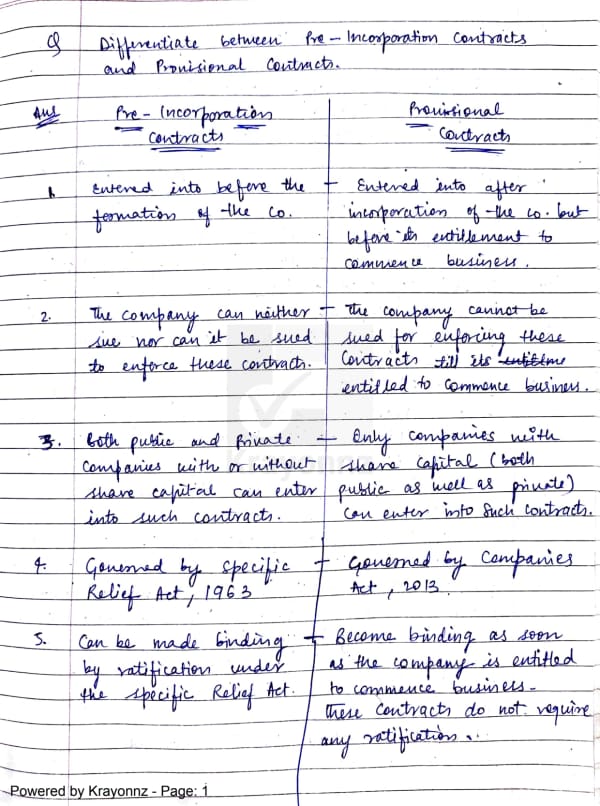 Q Differentiate between Pre-Incorporation Contracts
and Provisional Contracts.
Ans Pre-Incorporation Contracts
Provisional Contracts
1. Entered into before the
formation of the co.
- Entered into after
incorporation of the co. but
before its entitlement to
commence business.
2. The company can neither
sue nor can it be sued
to enforce these contracts.
- The company cannot be
sued for enforcing these
Contracts till its entitlme
entitled to commence business.
3. Both public and private
companies with or without
share capital can enter
into such contracts.
- Only companies with
share capital (both
public as well as private)
can enter into such contracts.
4. Governed by specific
Relief Act, 1963
- Governed by Companies
Act, 2013
5. Can be made binding
by ratification under
the specific Relief Act.
- Become binding as soon
as the company is entitled
to commence business -
These contracts do not require
any ratification..
krayonnz
Powered by Krayonnz - Page: 1